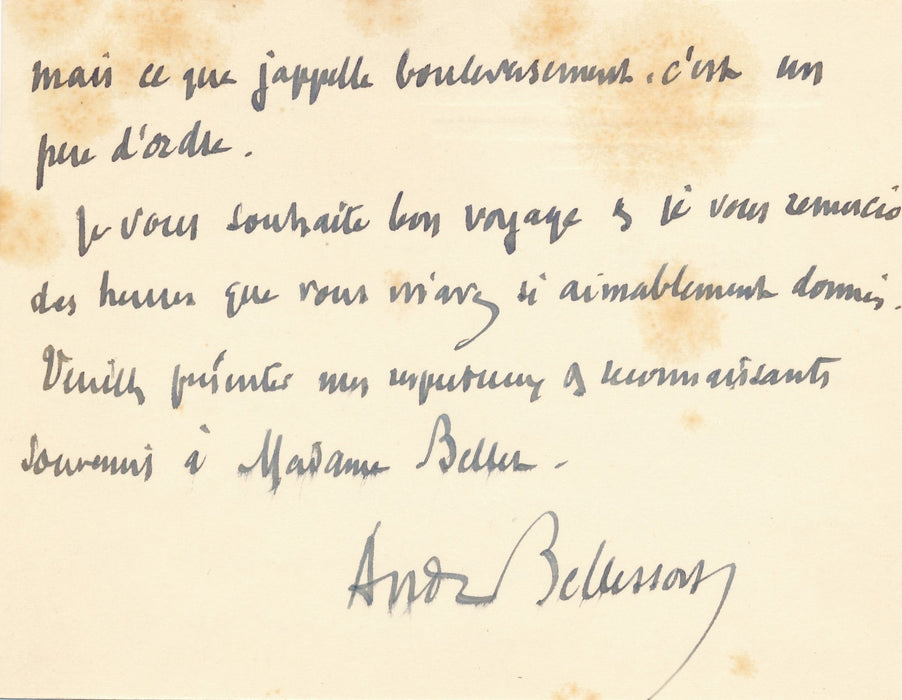 mais ce que j'appelle bouleversement, c'est un
peu d'ordre.
Je vous souhaite bon voyage & je vous remercie
des heures que vous m'avez si aimablement données.
Veuillez présenter mes respectueux & reconnaissants
souvenirs à Madame
André Bellessort